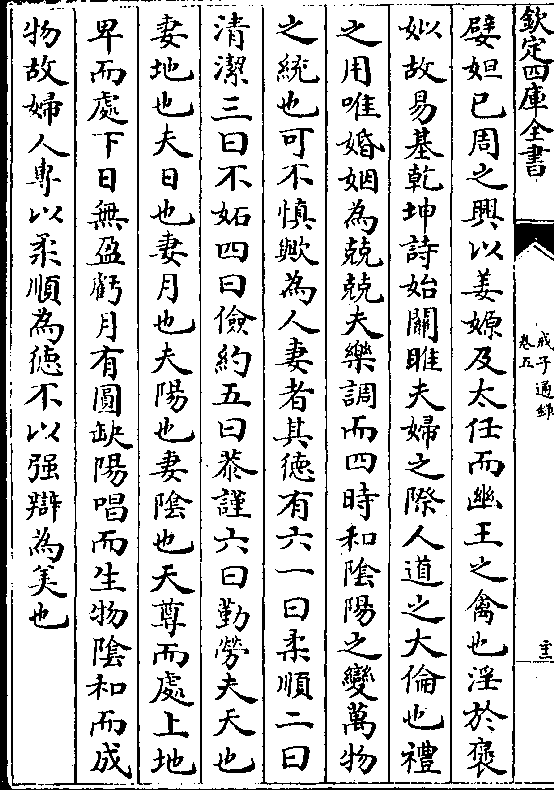 欽定四庫全書
戒子通錄
卷五
嬖妲已周之興以姜嫄及太任而幽王之禽也淫於褒
姒故易基乾坤詩始關雎夫婦之際人道之大倫也禮
之用唯婚姻為兢兢夫樂調而四時和陰陽之變萬物
之統也可不慎歟為人妻者其徳有六一曰柔順二曰
清潔三曰不妬四曰儉約五曰恭謹六曰勤勞夫天也
妻地也夫日也妻月也夫陽也妻陰也天尊而處上地
卑而處下日無盈虧月有圓缺陽唱而生物陰和而成
物故婦人專以柔順為徳不以强辯為美也